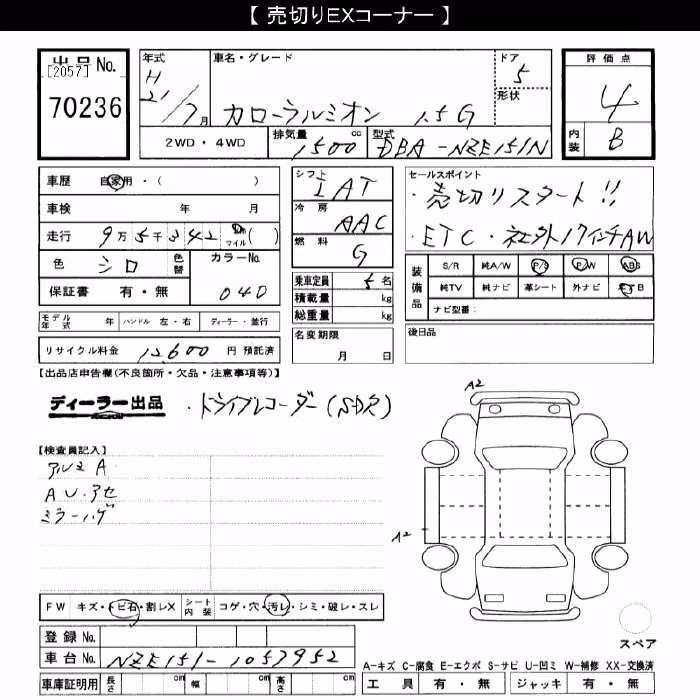 【 売切りEXコーナー 】
出品 No.
[2057]
70236
年式
H
21/7月
車名・グレード
カローラルミオン 1.5G
ドア
5
形状
評価点
4
内装
B
2WD・4WD
排気量
1500 cc
型式
DBA-NZE151N
車歴 自家用・( )
車検 年 月
走行 9万5千342 Km マイル ( )
色 シロ 色替
カラーNo.
040
保証書 有・無
シフト
IAT
冷房
AAC
燃料
G
乗車定員 5名
積載量 kg
総重量 kg
セールスポイント
・売切りスタート!!
・ETC・社外17インチAW
装備品
S/R 純A/W P/S P/W ABS
純TV 純ナビ 革シート 外ナビ エアB
ナビ型番:
モデル年式 年 ハンドル 左・右 ディーラー・並行
名変期限
月 日
後日品
リサイクル料金 12,600 円 預託済
【出品店申告欄(不良箇所・欠品・注意事項等)】
ディーラー出品
・ドライブレコーダー(SDR)
【検査員記入】
アルミA
AU.アセ
ミラーハゲ
A2
A2
FW キズ・トビ石・割レX
シート内装 コゲ・穴・汚レ・シミ・破レ・スレ
登録 No.
車台 No. NZE151-1057952
車庫証明用 長さ cm 幅 cm 高さ cm
スペア
A-キズ C-腐食 E-エクボ S-サビ U-凹ミ W-補修 XX-交換済
工具 有・無 ジャッキ 有・無